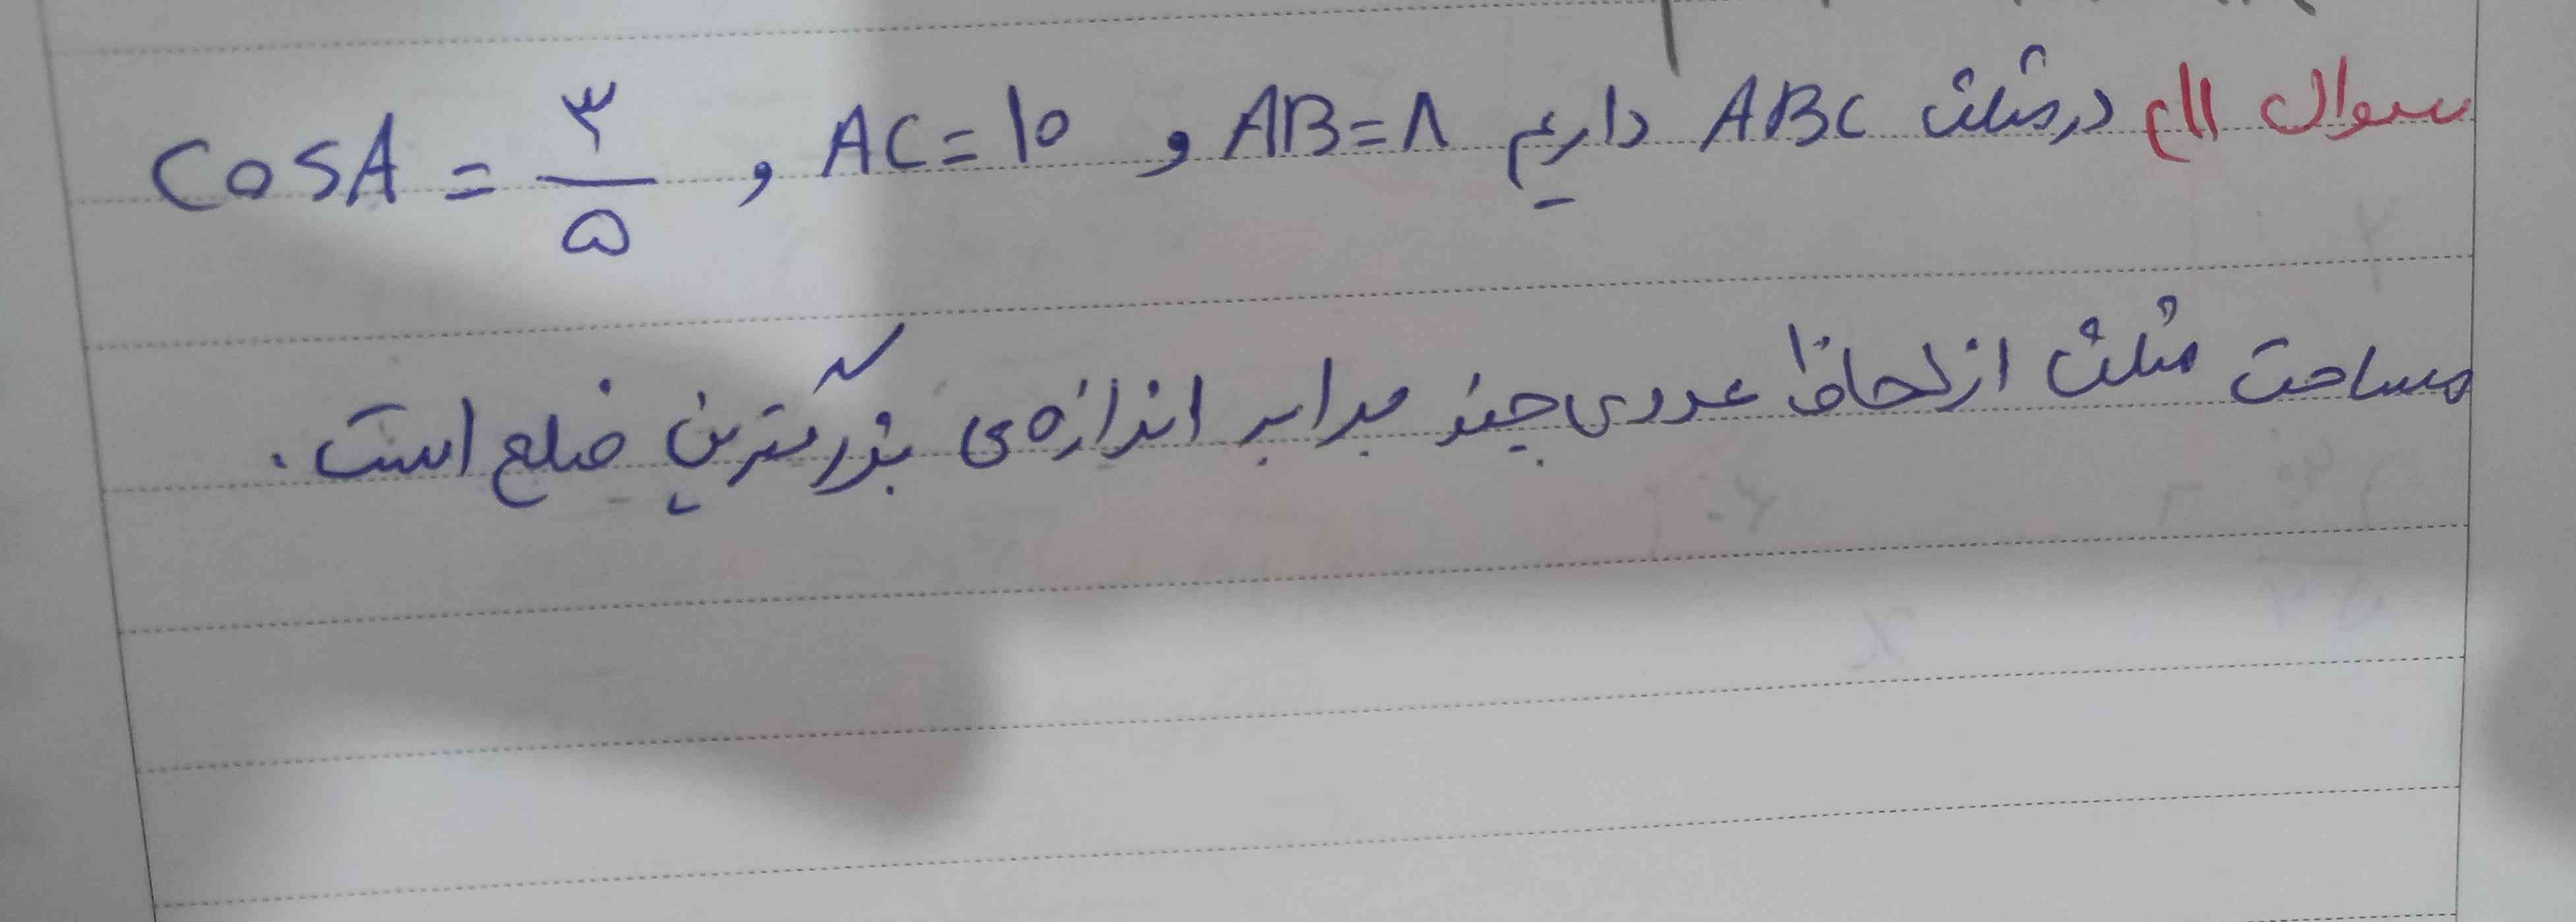 سوال ۱۱ع در مثلث ABC داریم AB=۸ و AC=۱۰ و COSA = ۳/۵
مساحت مثلث از لحاظ عددی چند برابر اندازه‌ی بزرگترین ضلع است.